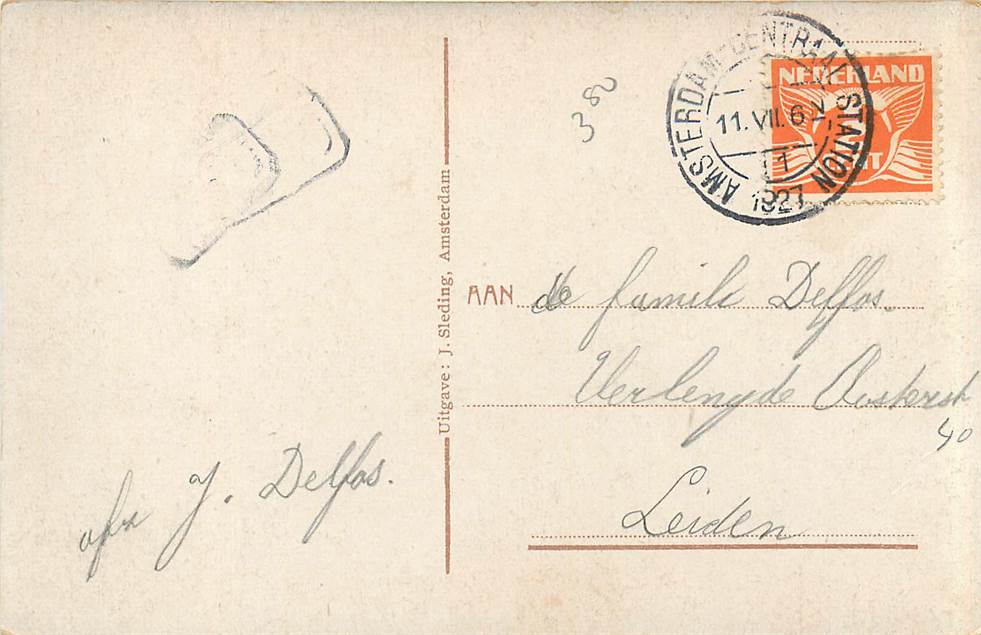 3 80
AMSTERDAM-CENTRAAL STATION
11.VII.6
1
1927
NEDERLAND
2
Uitgave: J. Sleding, Amsterdam
AAN de famile Delfos.
Verlengde Oosterst
40
Leiden
afz J. Delfos.